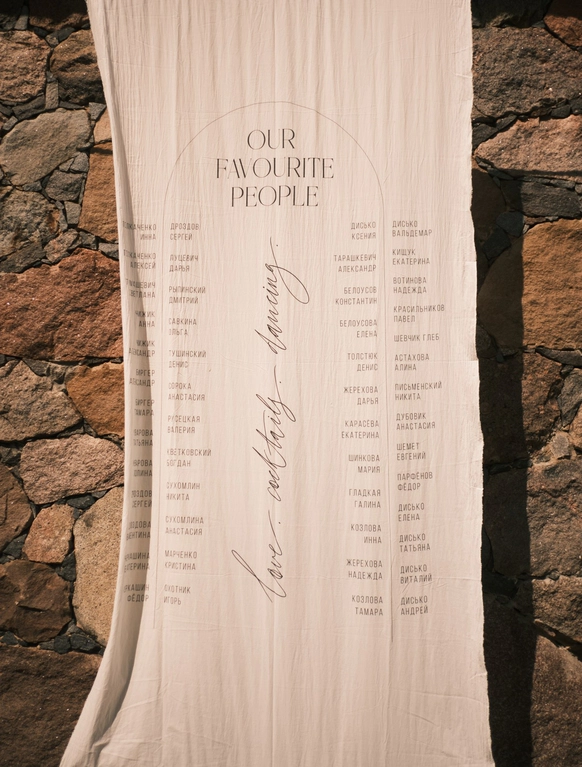 OUR
FAVOURITE
PEOPLE
ИННА
АННА
ФЁДОР
ДРОЗДОВ
СЕРГЕЙ
ЛУЦЕВИЧ
ДАРЬЯ
РЫПИНСКИЙ
ДМИТРИЙ
САВКИНА
ОЛЬГА
ТУШИНСКИЙ
ДЕНИС
СОРОКА
АНАСТАСИЯ
РУСЕЦКАЯ
ВАЛЕРИЯ
ЦВЕТКОВСКИЙ
БОГДАН
СУХОМЛИН
НИКИТА
СУХОМЛИНА
АНАСТАСИЯ
МАРЧЕНКО
КРИСТИНА
ОХОТНИК
ИГОРЬ
love. cocktails. dancing.
ДИСЬКО
КСЕНИЯ
ТАРАШКЕВИЧ
АЛЕКСАНДР
БЕЛОУСОВ
КОНСТАНТИН
БЕЛОУСОВА
ЕЛЕНА
ТОЛСТЮК
ДЕНИС
ЖЕРЕХОВА
ДАРЬЯ
КАРАСЁВА
ЕКАТЕРИНА
ШИНКОВА
МАРИЯ
ГЛАДКАЯ
ГАЛИНА
КОЗЛОВА
ИННА
ЖЕРЕХОВА
НАДЕЖДА
КОЗЛОВА
ТАМАРА
ДИСЬКО
ВАЛЬДЕМАР
КИЩУК
ЕКАТЕРИНА
ВОТИНОВА
НАДЕЖДА
КРАСИЛЬНИКОВ
ПАВЕЛ
ШЕВЧИК ГЛЕБ
АСТАХОВА
АЛИНА
ПИСЬМЕНСКИЙ
НИКИТА
ДУБОВИК
АНАСТАСИЯ
ШЕМЕТ
ЕВГЕНИЙ
ПАРФЁНОВ
ФЁДОР
ДИСЬКО
ЕЛЕНА
ДИСЬКО
ТАТЬЯНА
ДИСЬКО
ВИТАЛИЙ
ДИСЬКО
АНДРЕЙ